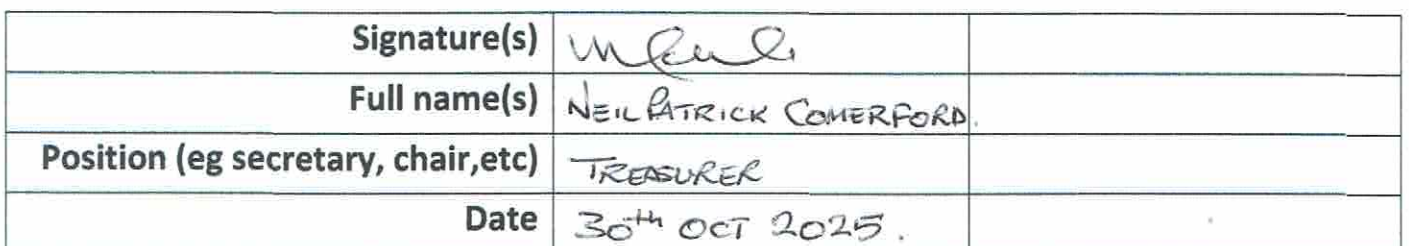 Signature(s)
Full name(s) NEIL PATRICK COMERFORD.
Position (eg secretary, chair,etc) TREASURER
Date 30th OCT 2025.